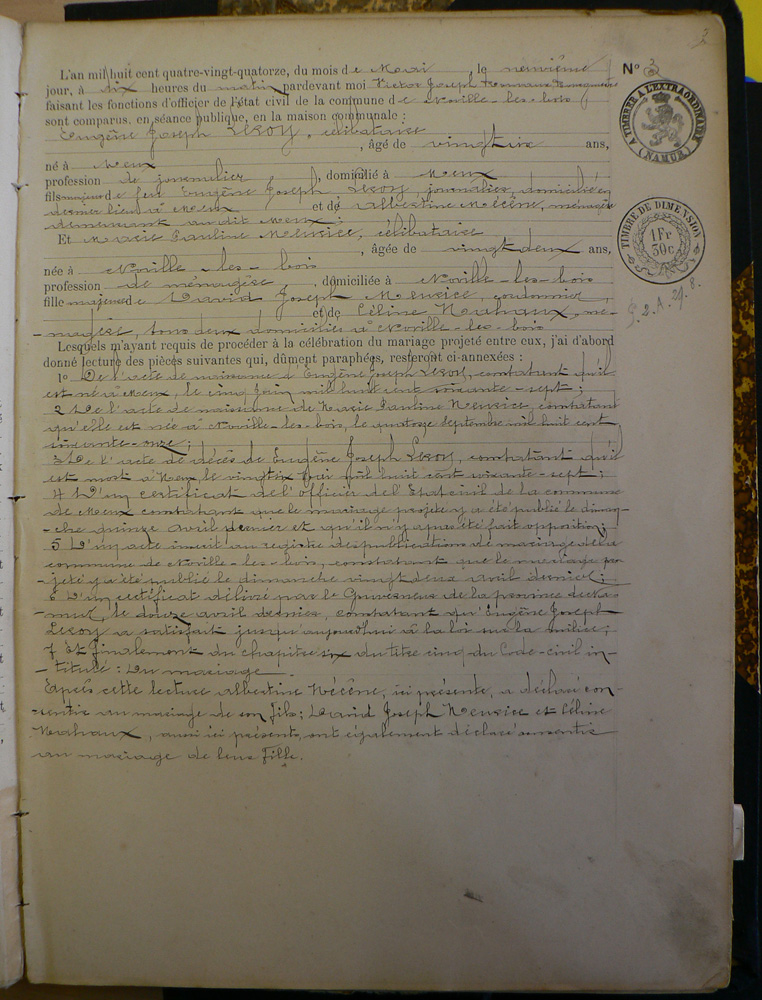 L'an mil huit cent quatre-vingt-quatorze, du mois de Mai, le neuvième
jour, à dix heures du matin pardevant moi Victor Joseph
faisant les fonctions d'officier de l'état civil de la commune de Noville-les-bois
sont comparus, en séance publique, en la maison communale :
Eugène Joseph Leroy, célibataire
, âgé de vingt six ans,
né à Meux
profession de journalier, domicilié à Meux
fils majeur de feu Eugène Joseph Leroy, journalier, domicilié en
dernier lieu à Meux et de Albertine Mécène, ménagère
demeurant au dit Meux ;
Et Marie Pauline Meurice, célibataire
, âgée de vingt deux ans,
née à Noville-les-bois
profession de ménagère, domiciliée à Noville-les-bois
fille majeure de David Joseph Meurice, cordonnier,
et de Céline Mahaux, mé-
-nagère, tous deux domiciliés à Noville-les-bois
Lesquels m'ayant requis de procéder à la célébration du mariage projeté entre eux, j'ai d'abord
donné lecture des pièces suivantes qui, dûment paraphées, resteront ci-annexées :
1° De l'acte de naissance d'Eugène Joseph Leroy, constatant qu'il
est né à Meux, le cinq Juin mil huit cent soixante-sept ;
2 De l'acte de naissance de Marie Pauline Meurice, constatant
qu'elle est née à Noville-les-bois, le quatorze Septembre mil huit cent
soixante-onze ;
3 De l'acte de décès de Eugène Joseph Leroy, constatant qu'il
est mort à Meux, le vingt six mil huit cent soixante-sept ;
4 D'un certificat de l'officier de l'Etat civil de la commune
de Meux constatant que le mariage projeté y a été publié le diman-
-che quinze avril dernier et qu'il n'y a pas été fait opposition ;
5 D'un acte inscrit au registre des publications de mariage de la
commune de Noville-les-bois, constatant que le mariage pro
-jeté y a été publié le dimanche vingt deux avril dernier ;
6 D'un certificat délivré par le Gouverneur de la province de Na-
-mur, le douze avril dernier, constatant qu'Eugène Joseph
Leroy a satisfait jusqu'aujourd'hui à la loi sur la milice ;
7 Et finalement du chapitre six du titre cinq du Code-civil in-
-titulé : Du mariage
Après cette lecture Albertine Mécène, ici présente, a déclaré con-
-sentir au mariage de son fils ; David Joseph Meurice et Céline
Mahaux, aussi ici présents, ont également déclaré consentir
au mariage de leur fille.
N° 3
TIMBRE A L'EXTRAORDINAIRE
(NAMUR)
TIMBRE DE DIMENSION
1 Fr
50c